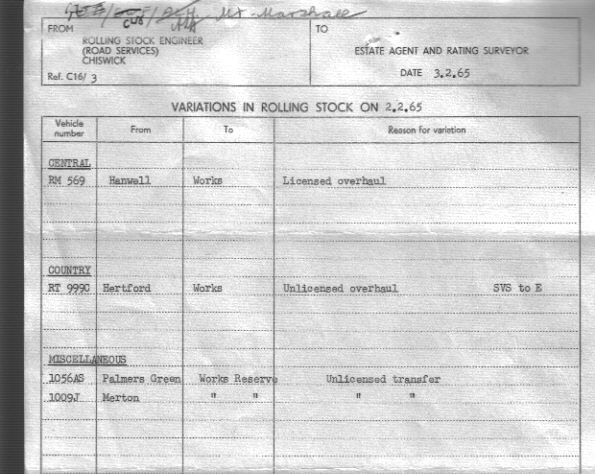 Mr. Marshall
FROM
TO
ROLLING STOCK ENGINEER
(ROAD SERVICES)
CHISWICK
Ref. C16/ 3
ESTATE AGENT AND RATING SURVEYOR
DATE 3.2.65
VARIATIONS IN ROLLING STOCK ON 2.2.65
Vehicle number From To Reason for variation
CENTRAL
RM 569 Hanwell Works Licensed overhaul
COUNTRY
RT 999C Hertford Works Unlicensed overhaul SVS to E
MISCELLANEOUS
1056AS Palmers Green Works Reserve Unlicensed transfer
1009J Merton " " " "